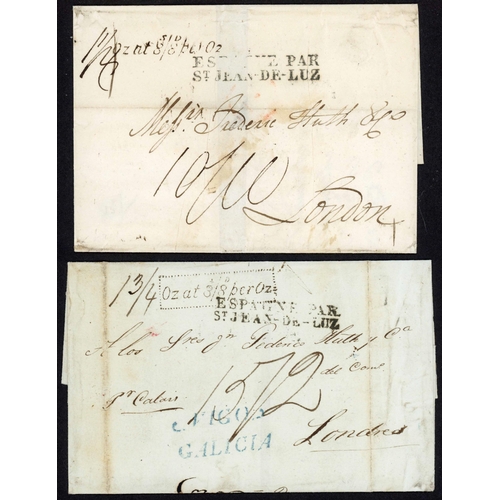 Oz at 8/8 per Oz
ESPAGNE PAR
ST JEAN-DE-LUZ
Messrs Frederic Huth & Co
10/10
London
1 3/4
Oz at 8/8 per Oz
ESPAGNE PAR
ST JEAN-DE-LUZ
A los Sres Dn Federico Huth y Ca
del Com
15/2
pr Calais
VIGO
GALICIA
Londres